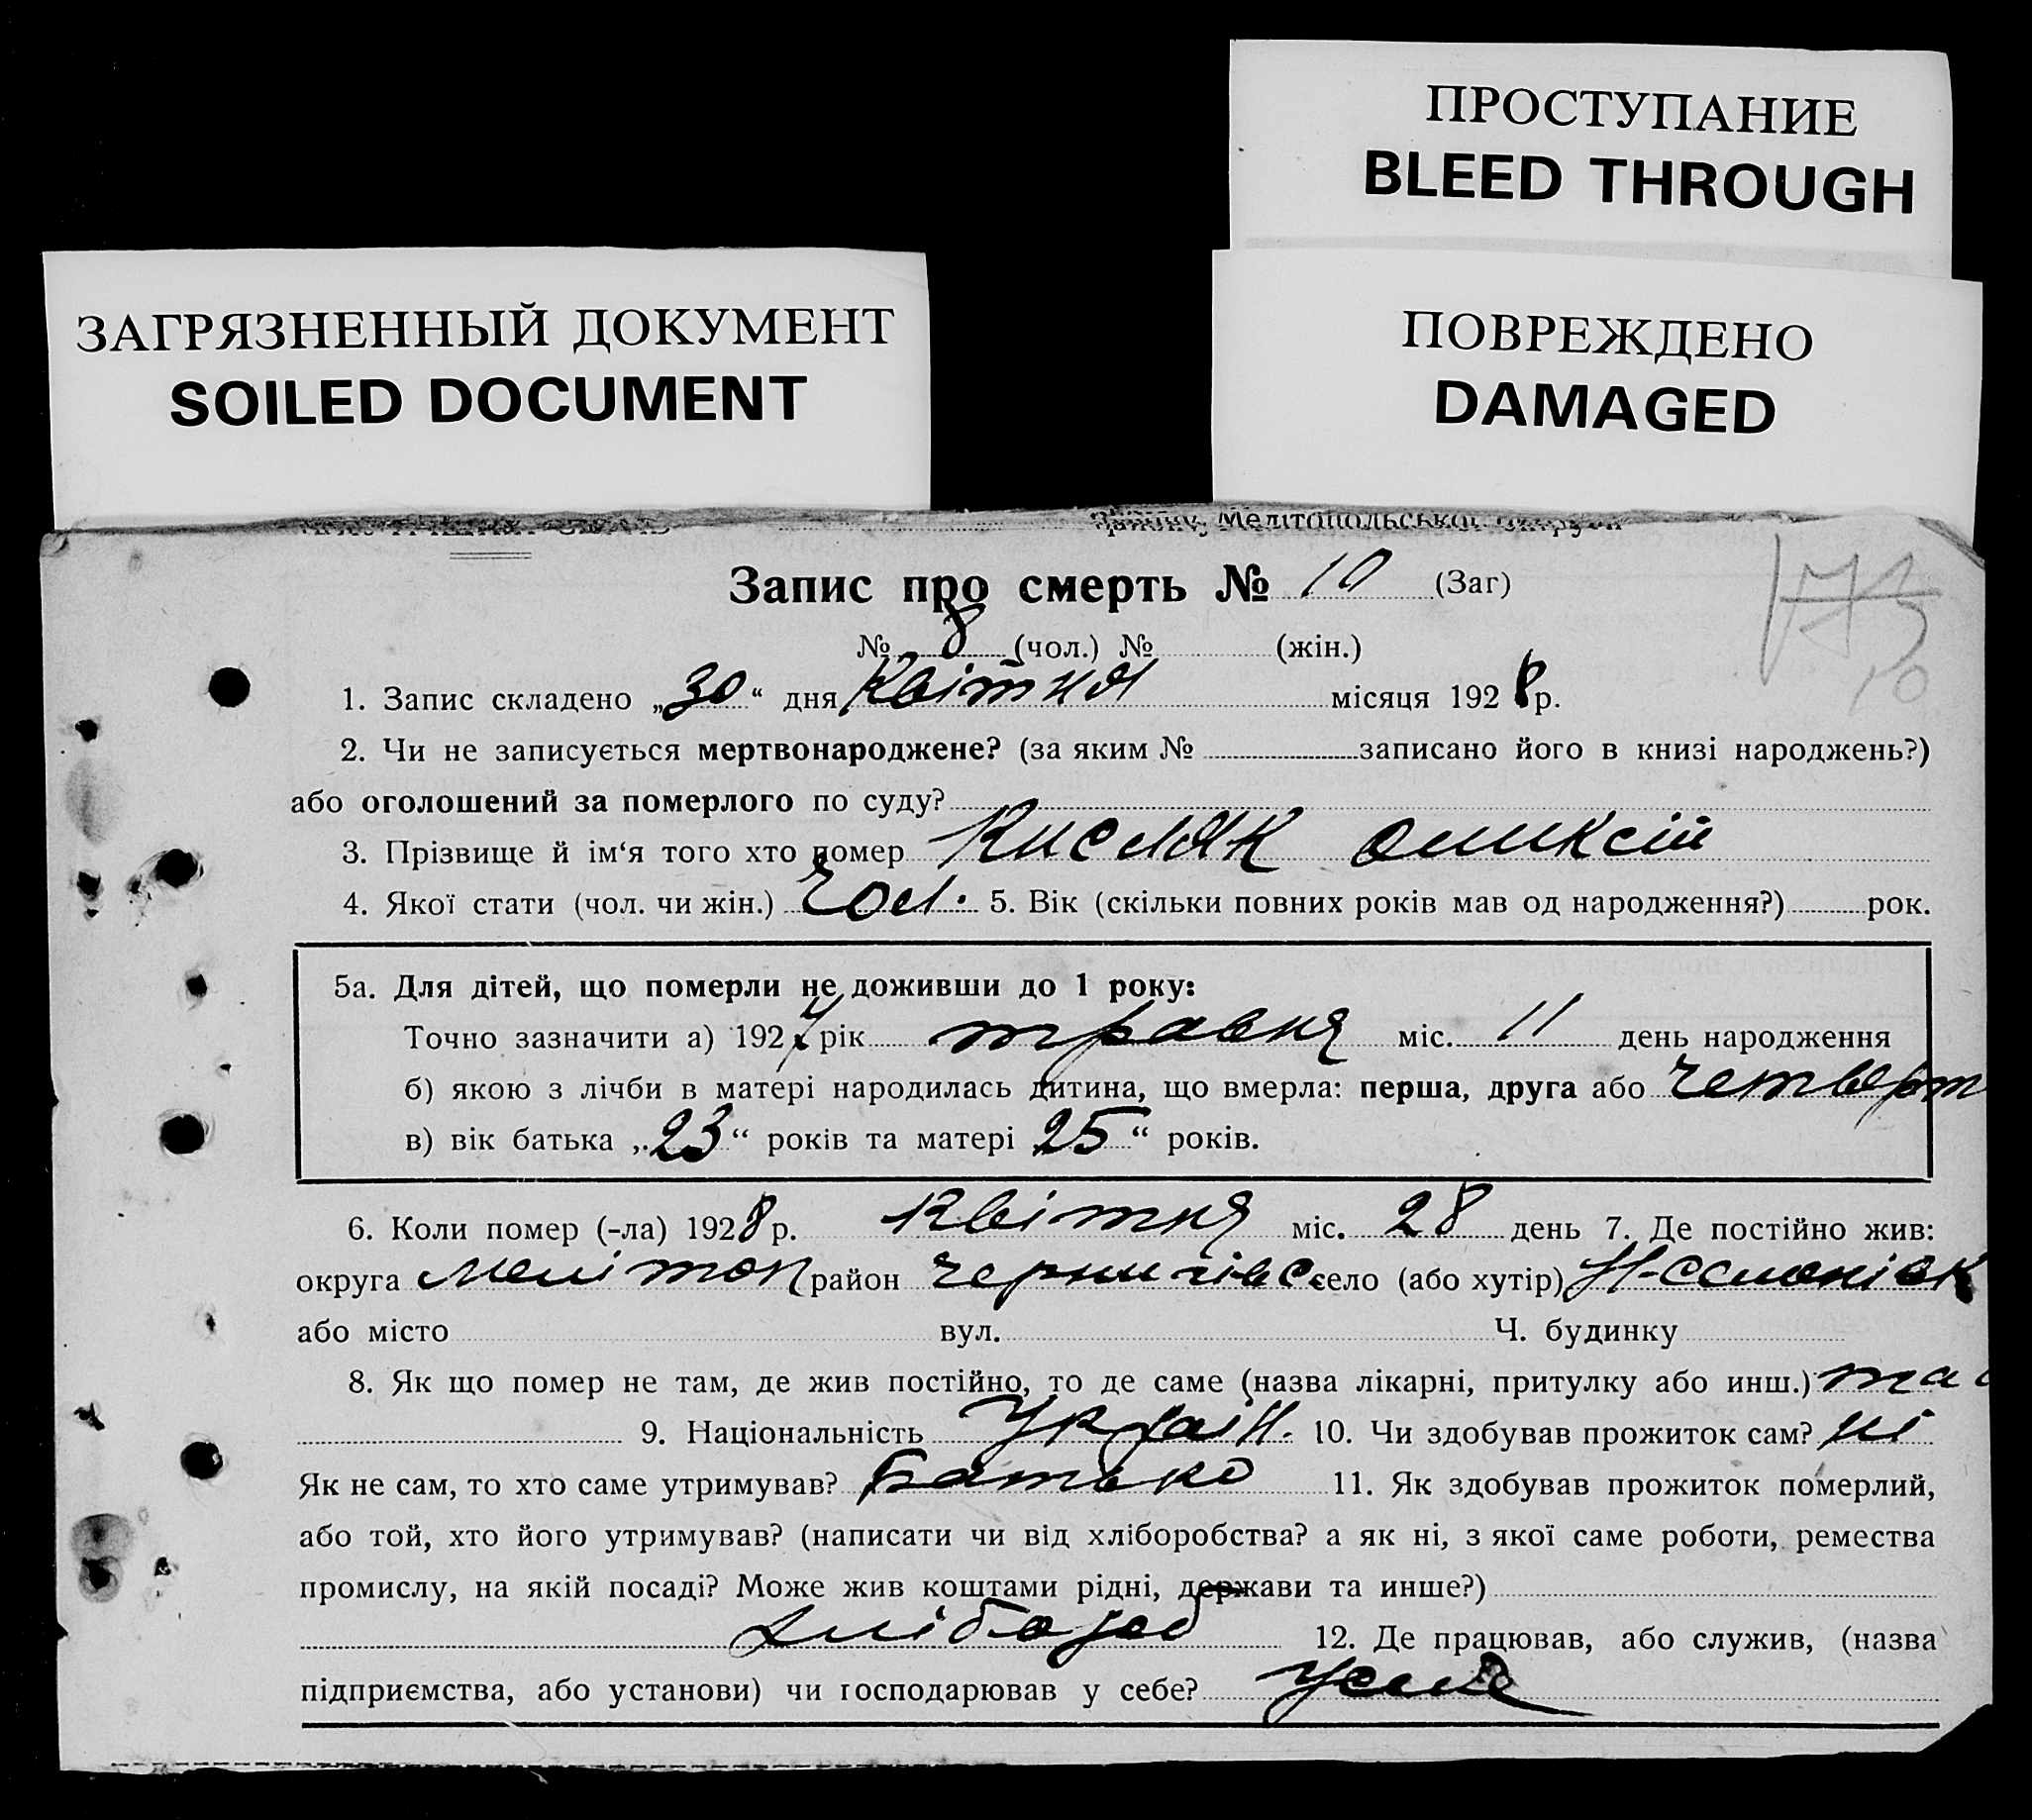 ПРОСТУПАНИЕ
BLEED THROUGH
ЗАГРЯЗНЕННЫЙ ДОКУМЕНТ
SOILED DOCUMENT
ПОВРЕЖДЕНО
DAMAGED
Мелітопольської округи
Запис про смерть № 10 (Заг)
№ 8 (чол.) № (жін.)
10
1. Запис складено „30“ дня квітня місяця 1928 р.
2. Чи не записується мертвонароджене? (за яким № записано його в книзі народжень?)
або оголошений за померлого по суду?
3. Прізвище й ім‘я того хто помер Кисляк Оликсій
4. Якої стати (чол. чи жін.) Чол. 5. Вік (скільки повних років мав од народження?) рок.
5а. Для дітей, що померли не доживши до 1 року:
Точно зазначити а) 1927 рік травня міс. 11 день народження
б) якою з лічби в матері народилась дитина, що вмерла: перша, друга або четверт
в) вік батька „23“ років та матері 25“ років.
6. Коли помер (-ла) 1928 р. квітня міс. 28 день 7. Де постійно жив:
округа Мелітоп район Чернигівс село (або хутір)
або місто вул. Ч. будинку
8. Як що помер не там, де жив постійно, то де саме (назва лікарні, притулку або инш.)
9. Національність Україн. 10. Чи здобував прожиток сам? ні
Як не сам, то хто саме утримував? Батько 11. Як здобував прожиток померлий,
або той, хто його утримував? (написати чи від хліборобства? а як ні, з якої саме роботи, ремества
промислу, на якій посаді? Може жив коштами рідні, держави та инше?)
хлібороб 12. Де працював, або служив, (назва
підприємства, або установи) чи господарював у себе? усебе